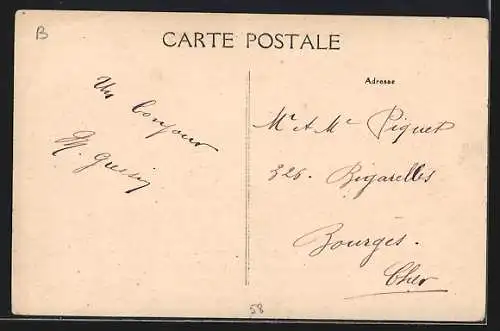 B
CARTE POSTALE
Un bonjour
M.
Adresse
Mr & Me Piquet
326. Bigarelles
Bourges.
Cher
58